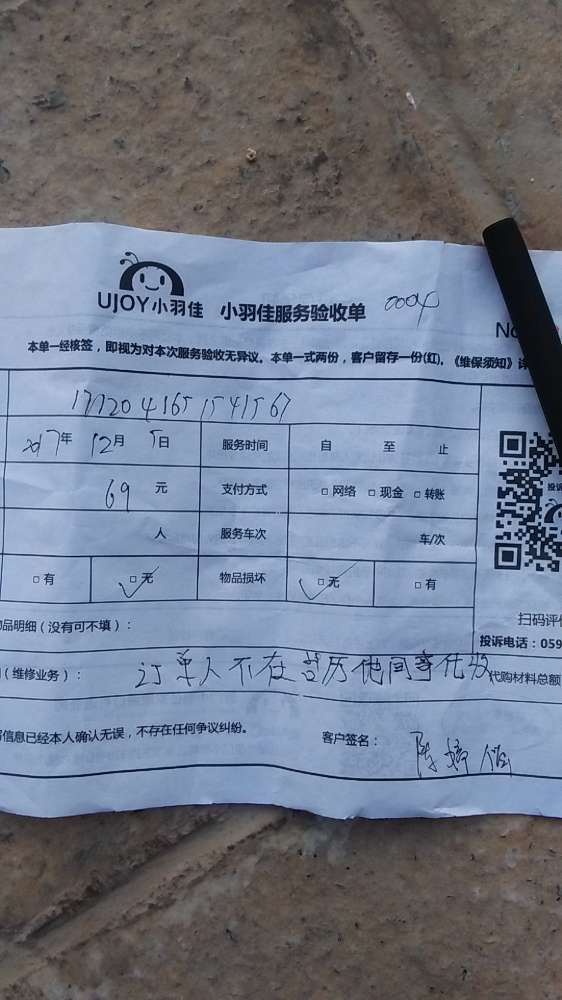 UJOY小羽佳 小羽佳服务验收单 0004 No
本单一经核签，即视为对本次服务验收无异议。本单一式两份，客户留存一份(红)。《维保须知》详
1712041651541567
2017年 12月 5日 服务时间 自 至 止
69 元 支付方式 □ 网络 □ 现金 □ 转账
人 服务车次 车/次
□ 有 □ 无 物品损坏 □ 无 □ 有
品明细（没有可不填）：
扫码评
投诉电话：059
（维修业务）： 订单人不在 他同事代收 代购材料总额
信息已经本人确认无误，不存在任何争议纠纷。 客户签名： 陈婷
投诉